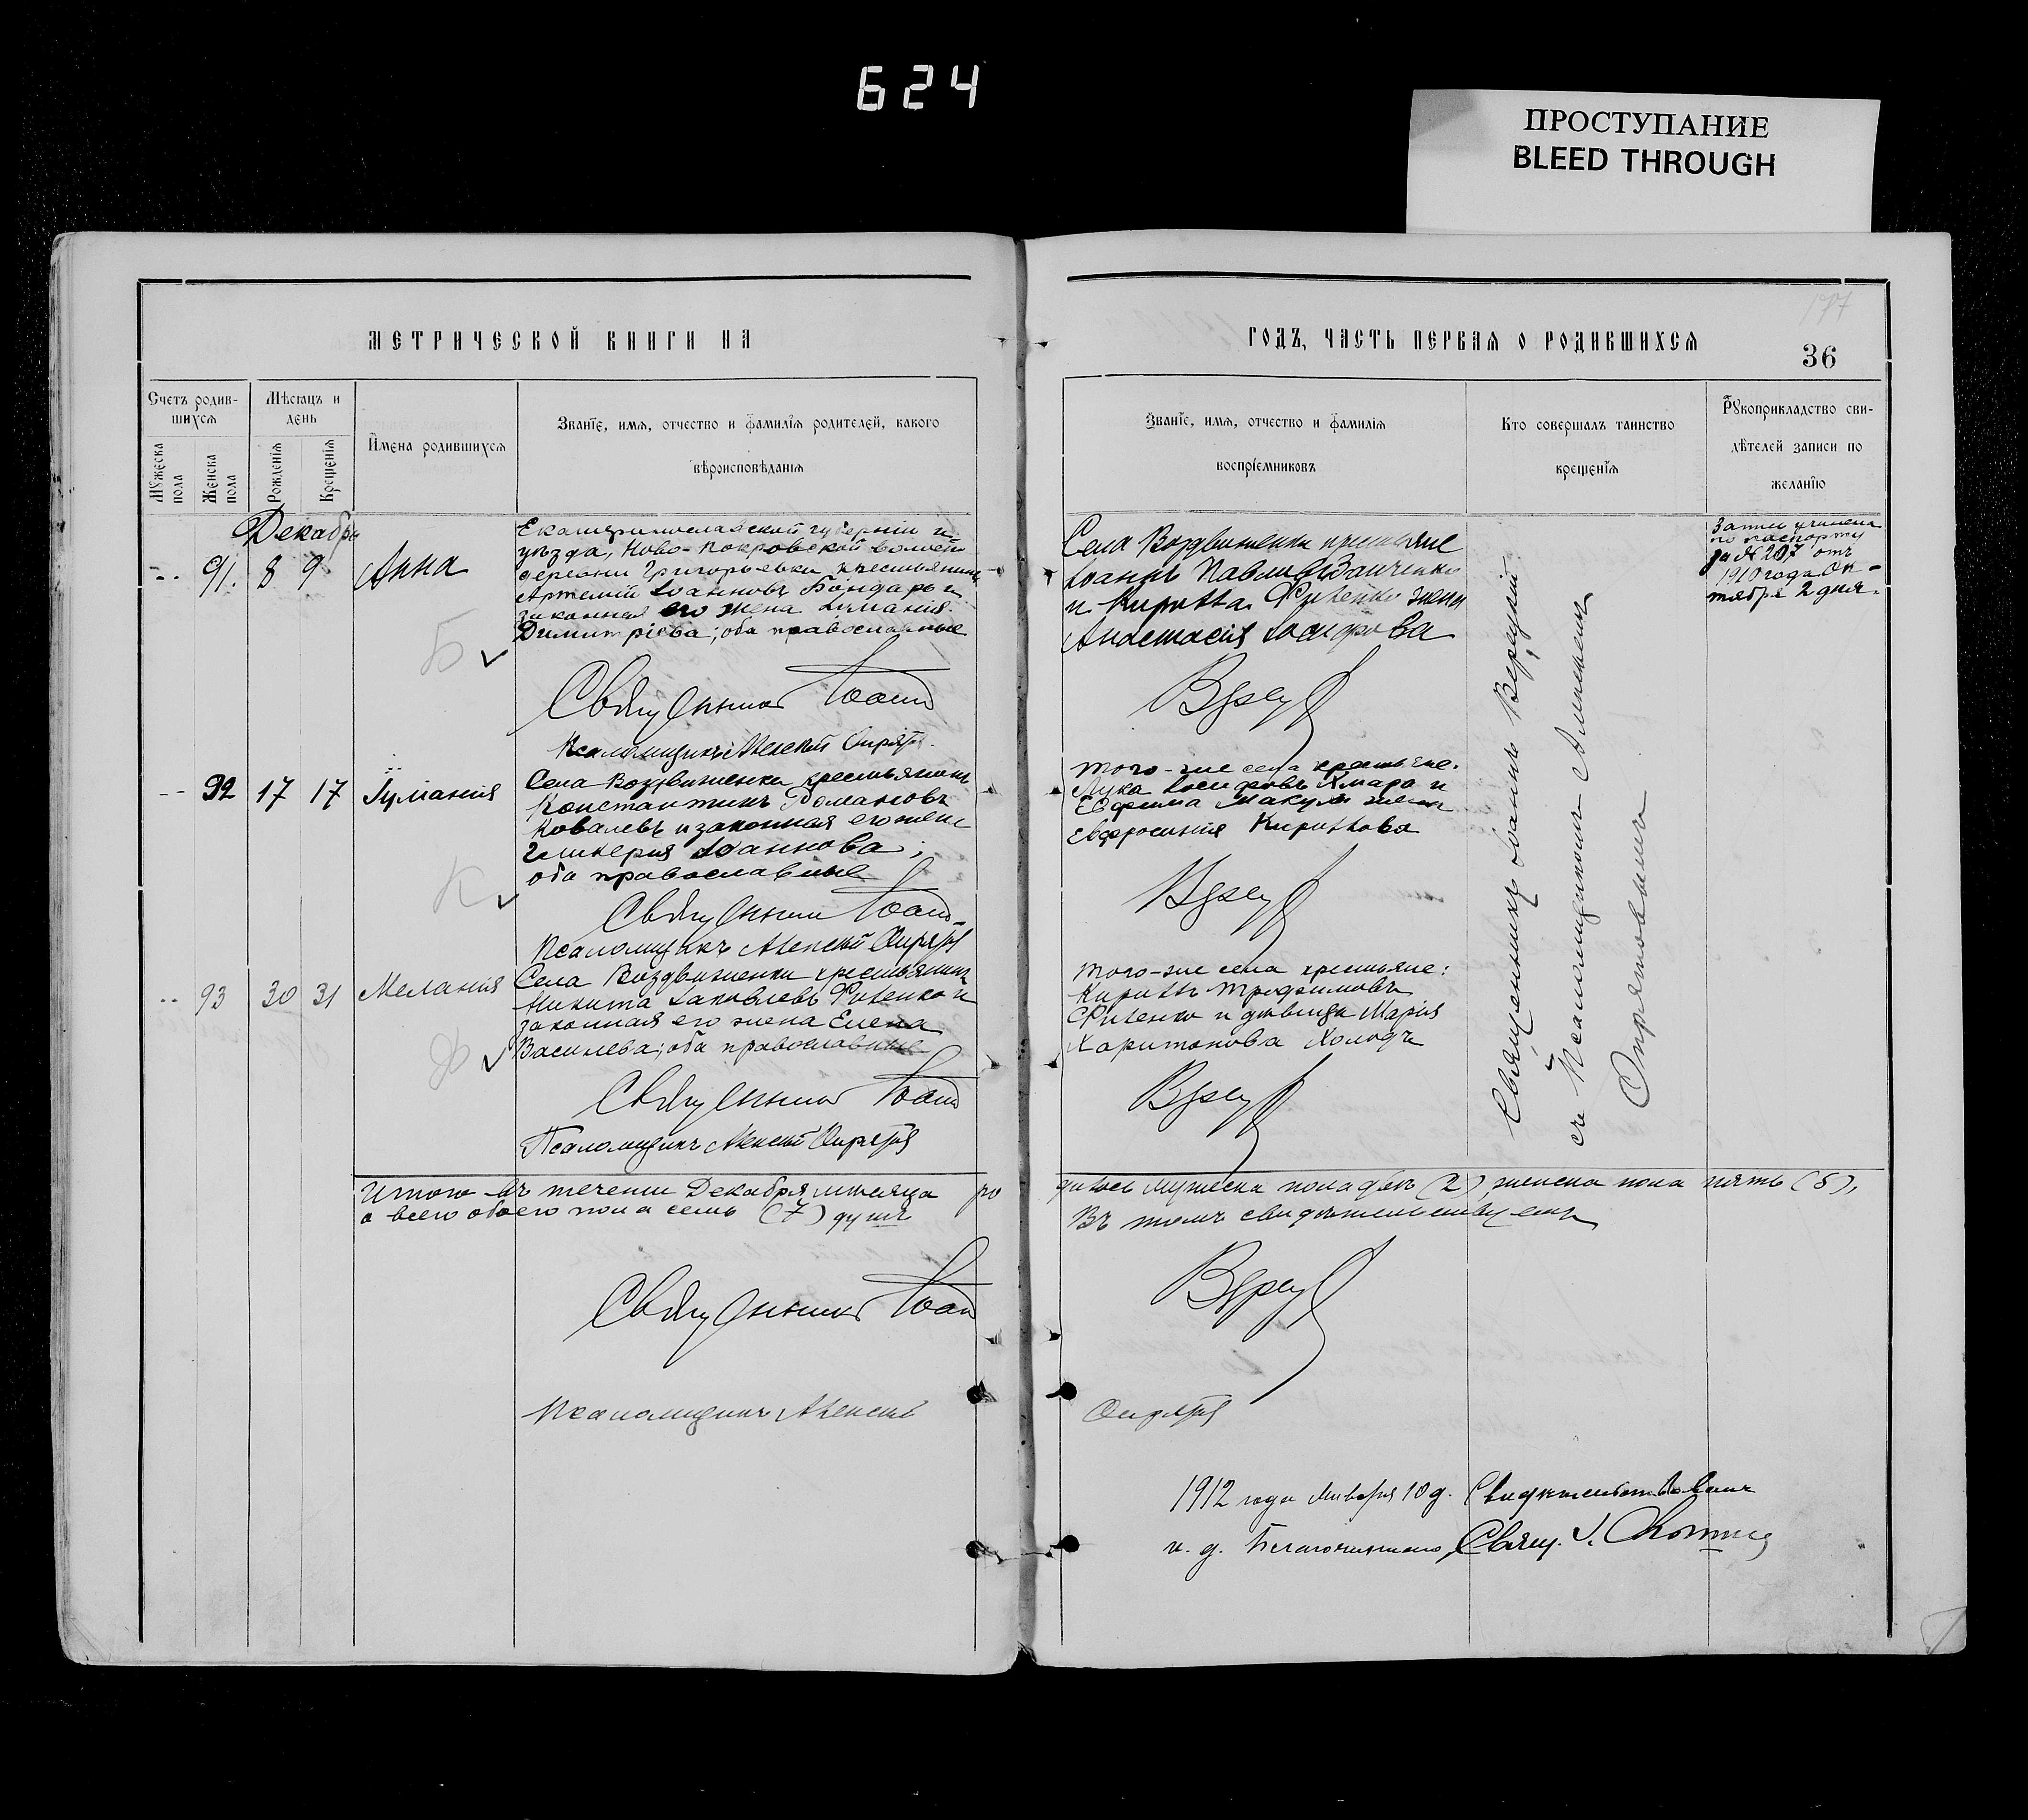 624
ПРОСТУПАНИЕ
BLEED THROUGH
МЕТРИЧЕСКОЙ КНИГИ НА
ГОДЪ, ЧАСТЬ ПЕРВАЯ О РОДИВШИХСЯ
177
36
Счетъ родив-
шихся
Мужеска пола
Женска пола
Мѣсяцъ и
день
Рожденія
Крещенія
Имена родившихся
Званіе, имя, отчество и фамилія родителей, какого
вѣроисповѣданія
Званіе, имя, отчество и фамилія
воспріемниковъ
Кто совершалъ таинство
крещенія
Рукоприкладство сви-
дѣтелей записи по
желанію
Декабрь
91. 8 9 Анна
Екатеринославской губерніи и
уѣзда, Ново-Покровской волости
деревни Григорьевки крестьянинъ
Артемій Іоанновъ Бондарь и
законная его жена
Димитріева; оба православные
Б
Священникъ Іоаннъ
Псаломщикъ Алексѣй Опрятовъ
Села Воздвиженки крестьяне
Іоаннъ Павловъ
и Кирилла жена
Анастасія Іосифова
Верецкій
Запись учинена
по паспорту
за № 207 отъ
1910 года Ок-
тября 2 дня.
92 17 17 Іуліанія
Села Воздвиженки крестьянинъ
Константинъ Романовъ
Ковалевъ и законная его жена
Гликерія Іоаннова;
оба православные
К
Священникъ Іоаннъ
Псаломщикъ Алексѣй Опрятовъ
того-же села крестьяне:
Лука Іосифовъ Хмара и
Евфима жена
Евфросинія Кириллова
Верецкій
93 30 31 Меланія
Села Воздвиженки крестьянинъ
Никита Іаковлевъ и
законная его жена Елена
Васильева; оба православные
Священникъ Іоаннъ
Псаломщикъ Алексѣй Опрятовъ
того-же села крестьяне:
Кириллъ Трофимовъ
и дѣвица Марія
Харитонова Холодъ
Верецкій
Священникъ Іоаннъ Верецкій
съ Псаломщикомъ Алексѣемъ
Опрятовымъ
Итого въ теченіи Декабря мѣсяца ро
дилось мужеска пола два (2), женска пола пять (5),
а всего обоего пола семь (7) душъ
Въ томъ свидѣтельствуемъ
Священникъ Іоаннъ
Верецкій
Псаломщикъ Алексѣй
Опрятовъ
1912 года Января 10 д. Свидѣтельствовалъ
и. д. Благочиннаго, Свящ. І.